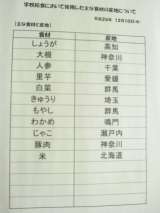 学校給食において使用した主な食材の産地について
平成24年 12月10日(月)
(主な食材と産地)
食材 産地
しょうが 高知
大根 神奈川
人参 千葉
里芋 愛媛
白菜 群馬
きゅうり 埼玉
もやし 群馬
わかめ 鳴門
じゃこ 瀬戸内
豚肉 神奈川
米 北海道